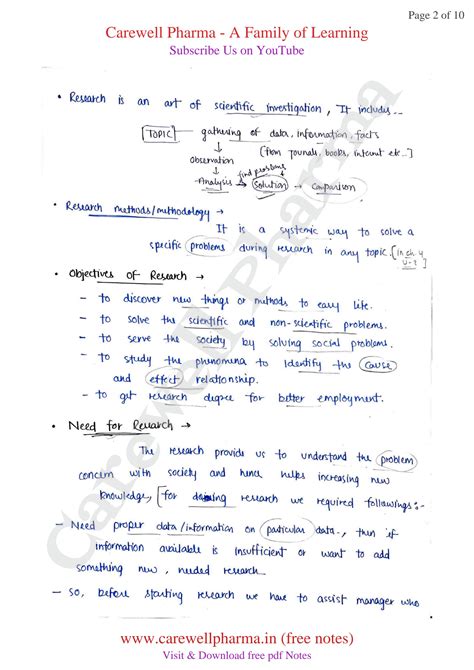 Page 2 of 10
Carewell Pharma - A Family of Learning
Subscribe Us on YouTube
• Research is an art of scientific investigation, It includes..
TOPIC → gathering of data, information, facts
[from jounals, books, internet etc..]
observation
find problems
→ Analysis → Solution → Comparison
• Research methods/methodology →
It is a systemic way to solve a
specific problems during research in any topic. [In ch. 4
• Objectives of Research →
- to discover new things or methods to easy life.
- to solve the scientific and non-scientific problems.
- to serve the society by solving social problems.
- to study the phenomina to identify the cause
and effect relationship.
- to get research degree for better employment.
• Need for Research →
The research provide us to understand the problem
concern with society and hence helps increasing new
knowledge, [for doing research we required followings:-
- Need proper data/information on particular data., then if
information available is insufficient or want to add
something new, needed research.
- So, before starting research we have to assist manager who
Carewell Pharma
www.carewellpharma.in (free notes)
Visit & Download free pdf Notes